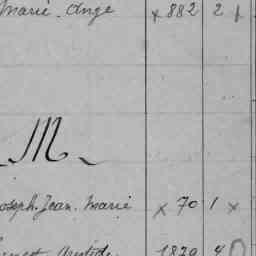 Marie. Ange x 882 2
M
Joseph. Jean. Marie x 70 1 x
1820 4